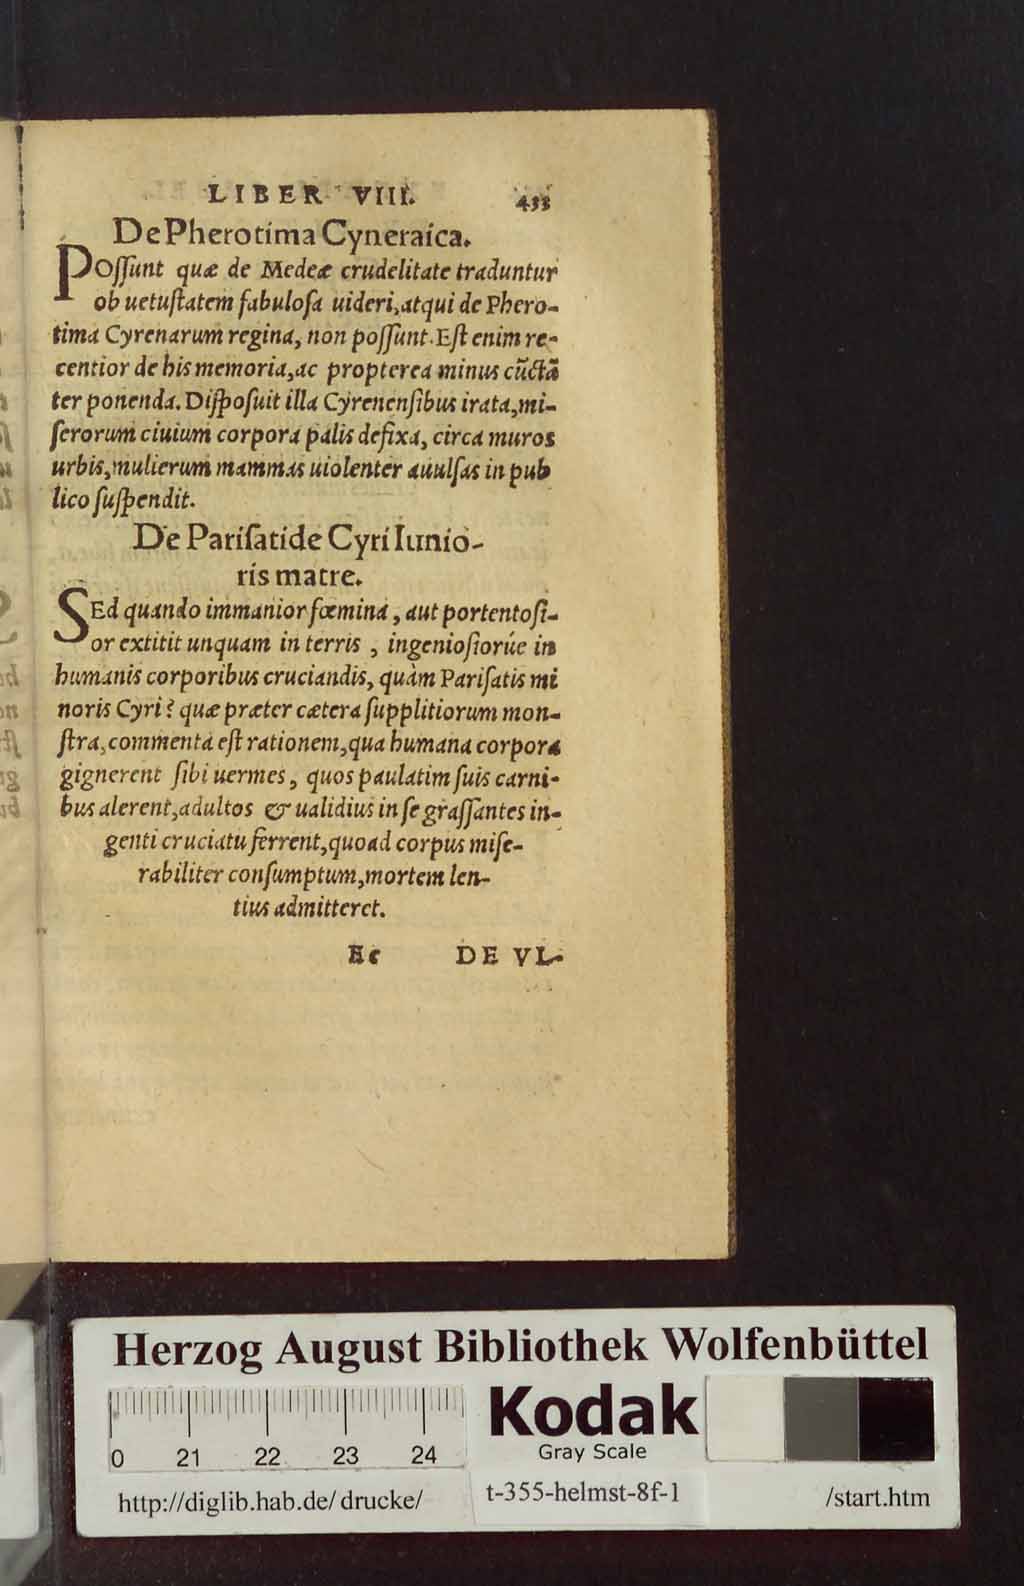 LIBER VIII. 433
De Pherotima Cyneraica.
POſſunt quæ de Medeæ crudelitate traduntur
ob uetuſtatem fabuloſa uideri, atqui de Phero-
tima Cyrenarum regina, non poſſunt. Eſt enim re-
centior de his memoria, ac propterea minus cūctā
ter ponenda. Diſpoſuit illa Cyrenenſibus irata, mi-
ſerorum ciuium corpora palis defixa, circa muros
urbis, mulierum mammas uiolenter auulſas in pub
lico ſuſpendit.
De Pariſatide Cyri Iunio-
ris matre.
SEd quando immanior fœmina, aut portentoſi-
or extitit unquam in terris, ingenioſiorúe in
humanis corporibus cruciandis, quàm Pariſatis mi
noris Cyri? quæ præter cætera ſupplitiorum mon-
ſtra, commenta eſt rationem, qua humana corpora
gignerent ſibi uermes, quos paulatim ſuis carni-
bus alerent, adultos & ualidius in ſe graſſantes in-
genti cruciatu ferrent, quoad corpus miſe-
rabiliter conſumptum, mortem len-
tius admitteret.
Ee DE VL-
Herzog August Bibliothek Wolfenbüttel
Kodak
Gray Scale
0 21 22 23 24
http://diglib.hab.de/drucke/ t-355-helmst-8f-1 /start.htm